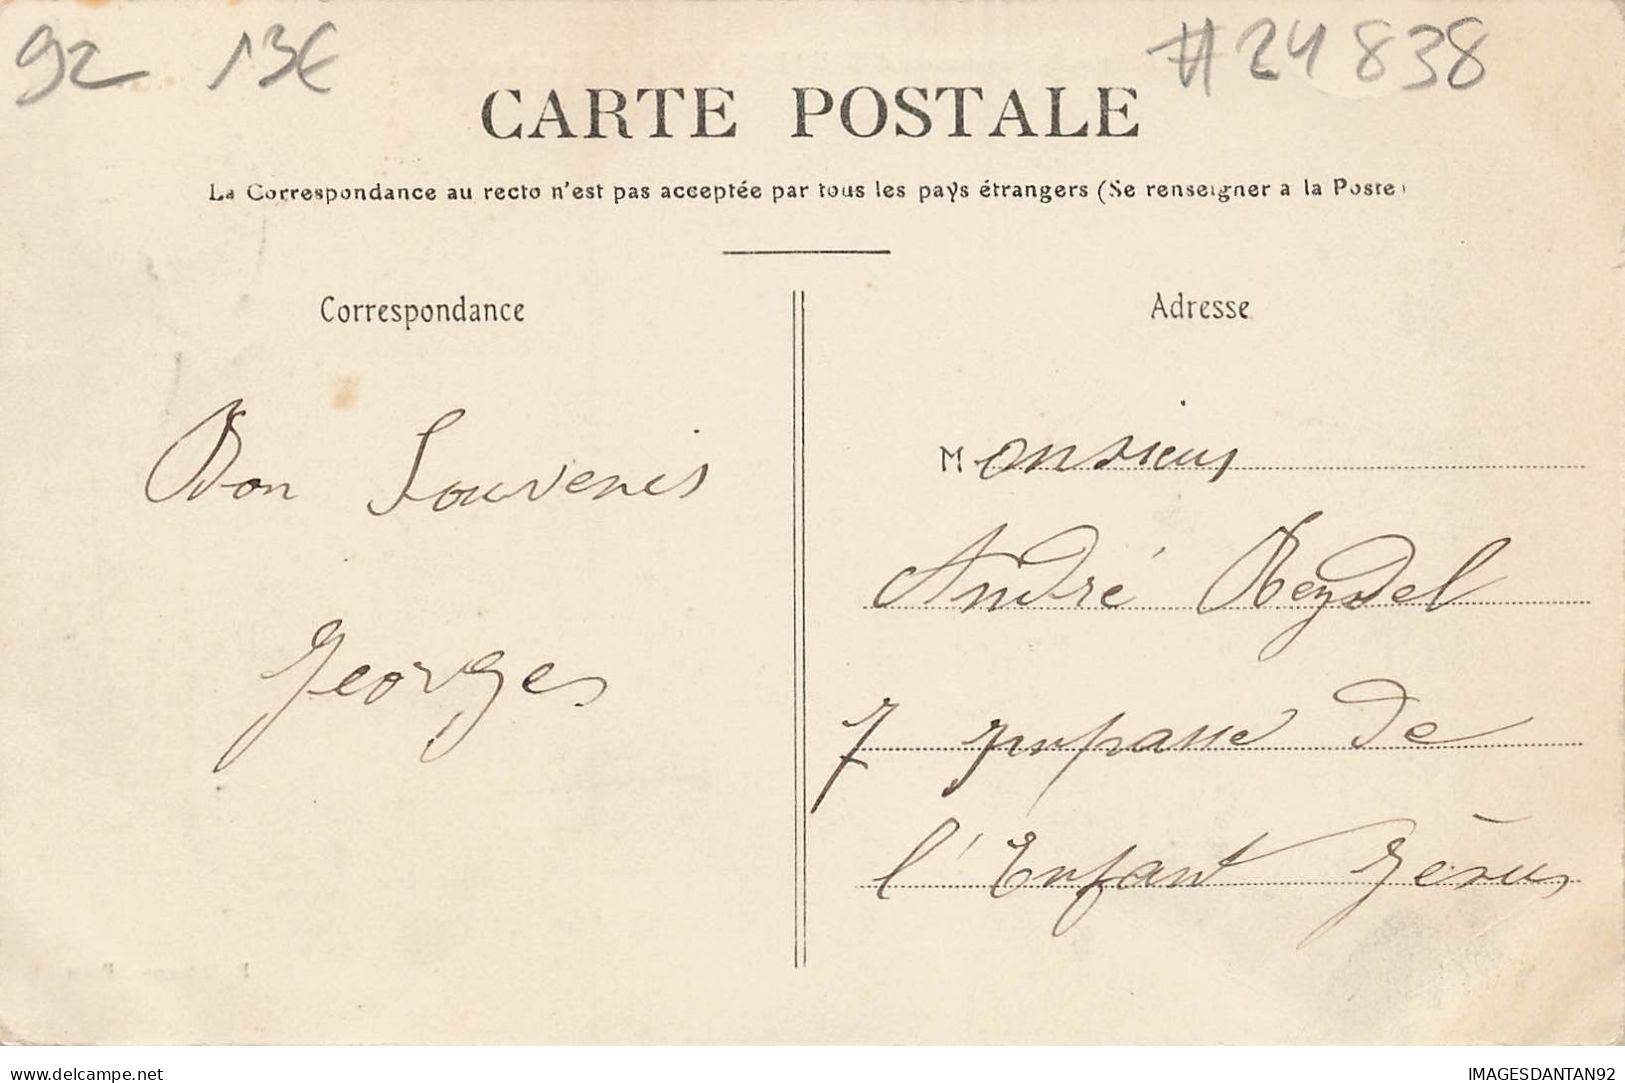 92 13€ #24838
CARTE POSTALE
La Correspondance au recto n'est pas acceptée par tous les pays étrangers (Se renseigner a la Poste)
Correspondance
Bon Souvenir
Georges
Adresse
Monsieur
André Reydel
7 impasse de
l'Enfant Jésus
www.delcampe.net
IMAGESDANTAN92